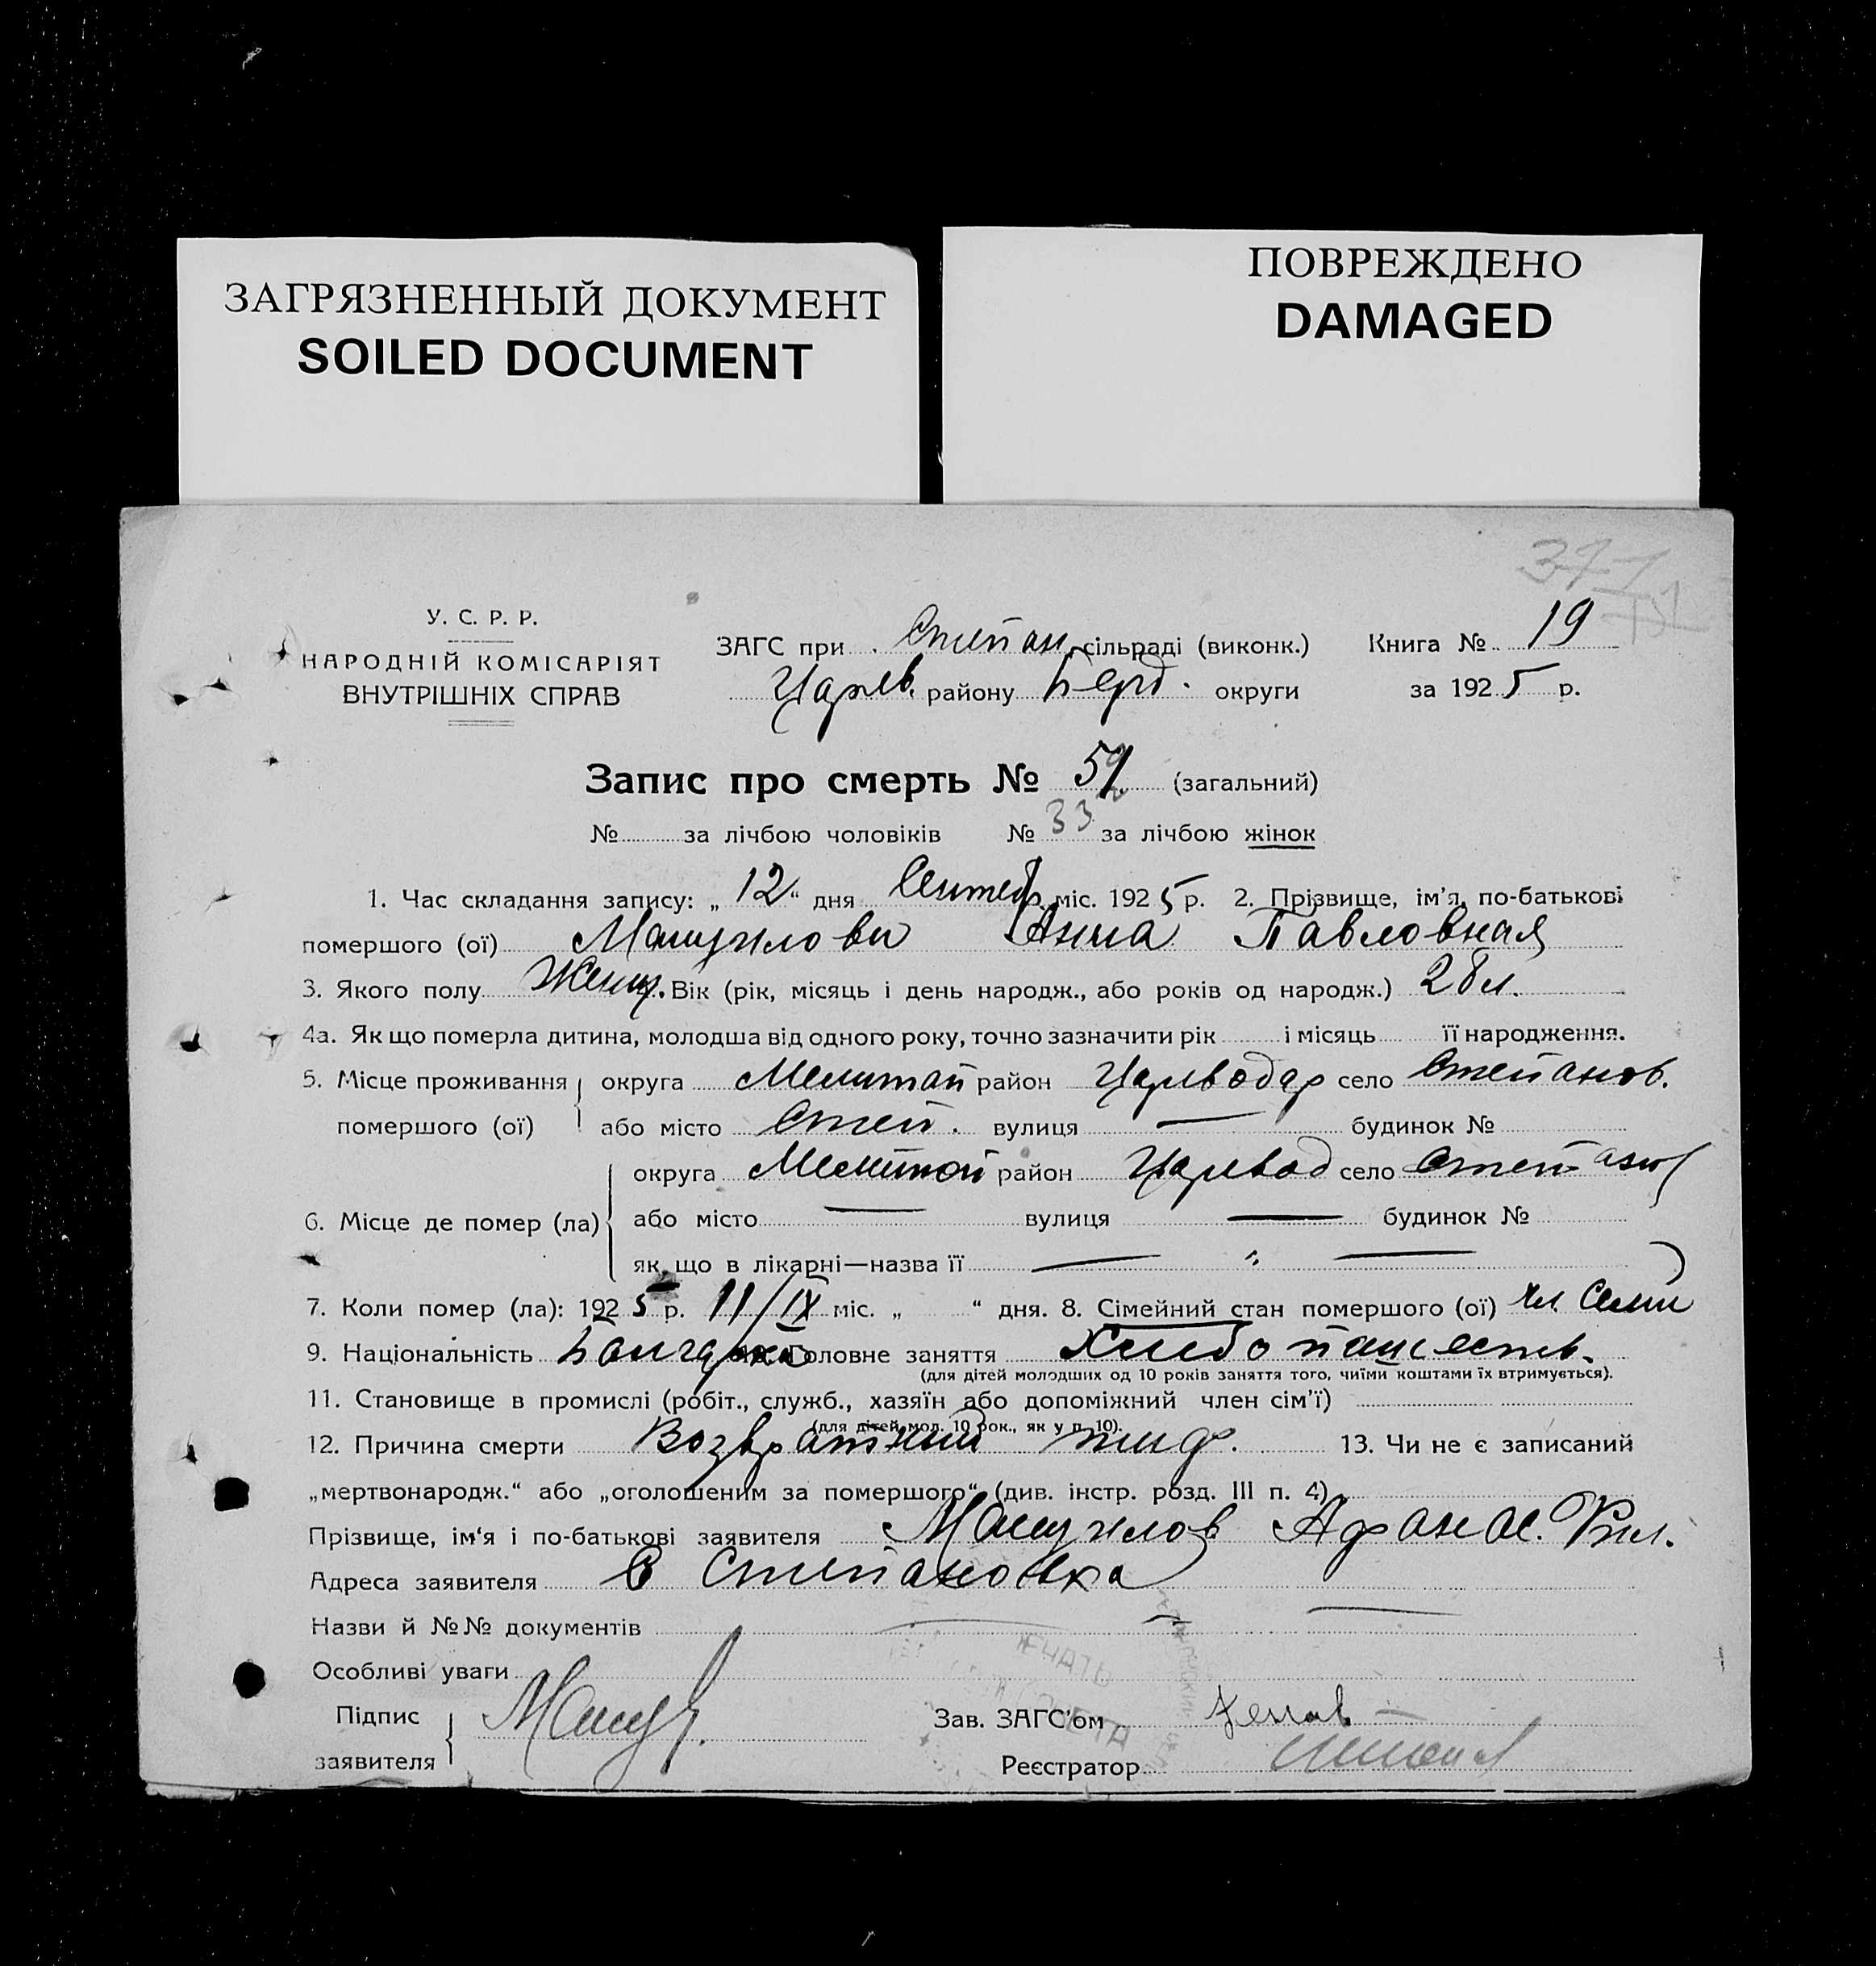 ЗАГРЯЗНЕННЫЙ ДОКУМЕНТ
SOILED DOCUMENT
ПОВРЕЖДЕНО
DAMAGED
У. С. Р. Р.
НАРОДНІЙ КОМІСАРІЯТ
ВНУТРІШНІХ СПРАВ
ЗАГС при Степан. сільраді (виконк.) Книга № 19
Царев. району Берд. округи за 1925 р.
Запис про смерть № (загальний)
№ за лічбою чоловіків № 33 за лічбою жінок
1. Час складання запису: „ 12 “ дня Сентеб. міс. 1925 р. 2. Прізвище, ім'я, по-батькові
помершого (ої) Анна Павловная
3. Якого полу Женщ. Вік (рік, місяць і день народж., або років од народж.) 28 л.
4а. Як що померла дитина, молодша від одного року, точно зазначити рік і місяць її народження.
5. Місце проживання округа Мелитоп район Цареводар село Степанов.
помершого (ої) або місто Степ. вулиця — будинок №
округа Мелитоп район Царевод село Степанов
6. Місце де помер (ла) або місто — вулиця — будинок №
як що в лікарні—назва її — „ —
7. Коли помер (ла): 1925 р. 11/IX міс. „ “ дня. 8. Сімейний стан помершого (ої) чл семи
9. Національність Болгарка Головне заняття Хлебопашеств.
(для дітей молодших од 10 років заняття того, чиїми коштами їх втримується).
11. Становище в промислі (робіт., служб., хазяїн або допоміжний член сім'ї)
(для дітей мол. 10 рок., як у п. 10).
12. Причина смерти Возвратный тиф. 13. Чи не є записаний
„мертвонародж.“ або „оголошеним за помершого“ (див. інстр. розд. III п. 4)
Прізвище, ім'я і по-батькові заявителя Афанас.
Адреса заявителя С Степановка
Назви й №№ документів —
Особливі уваги
Підпис
заявителя
Зав. ЗАГС'ом
Реєстратор